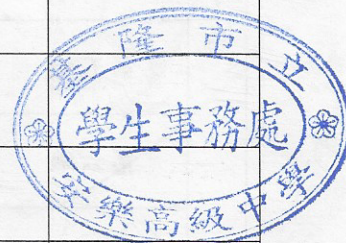 基隆市立
學生事務處
安樂高級中學